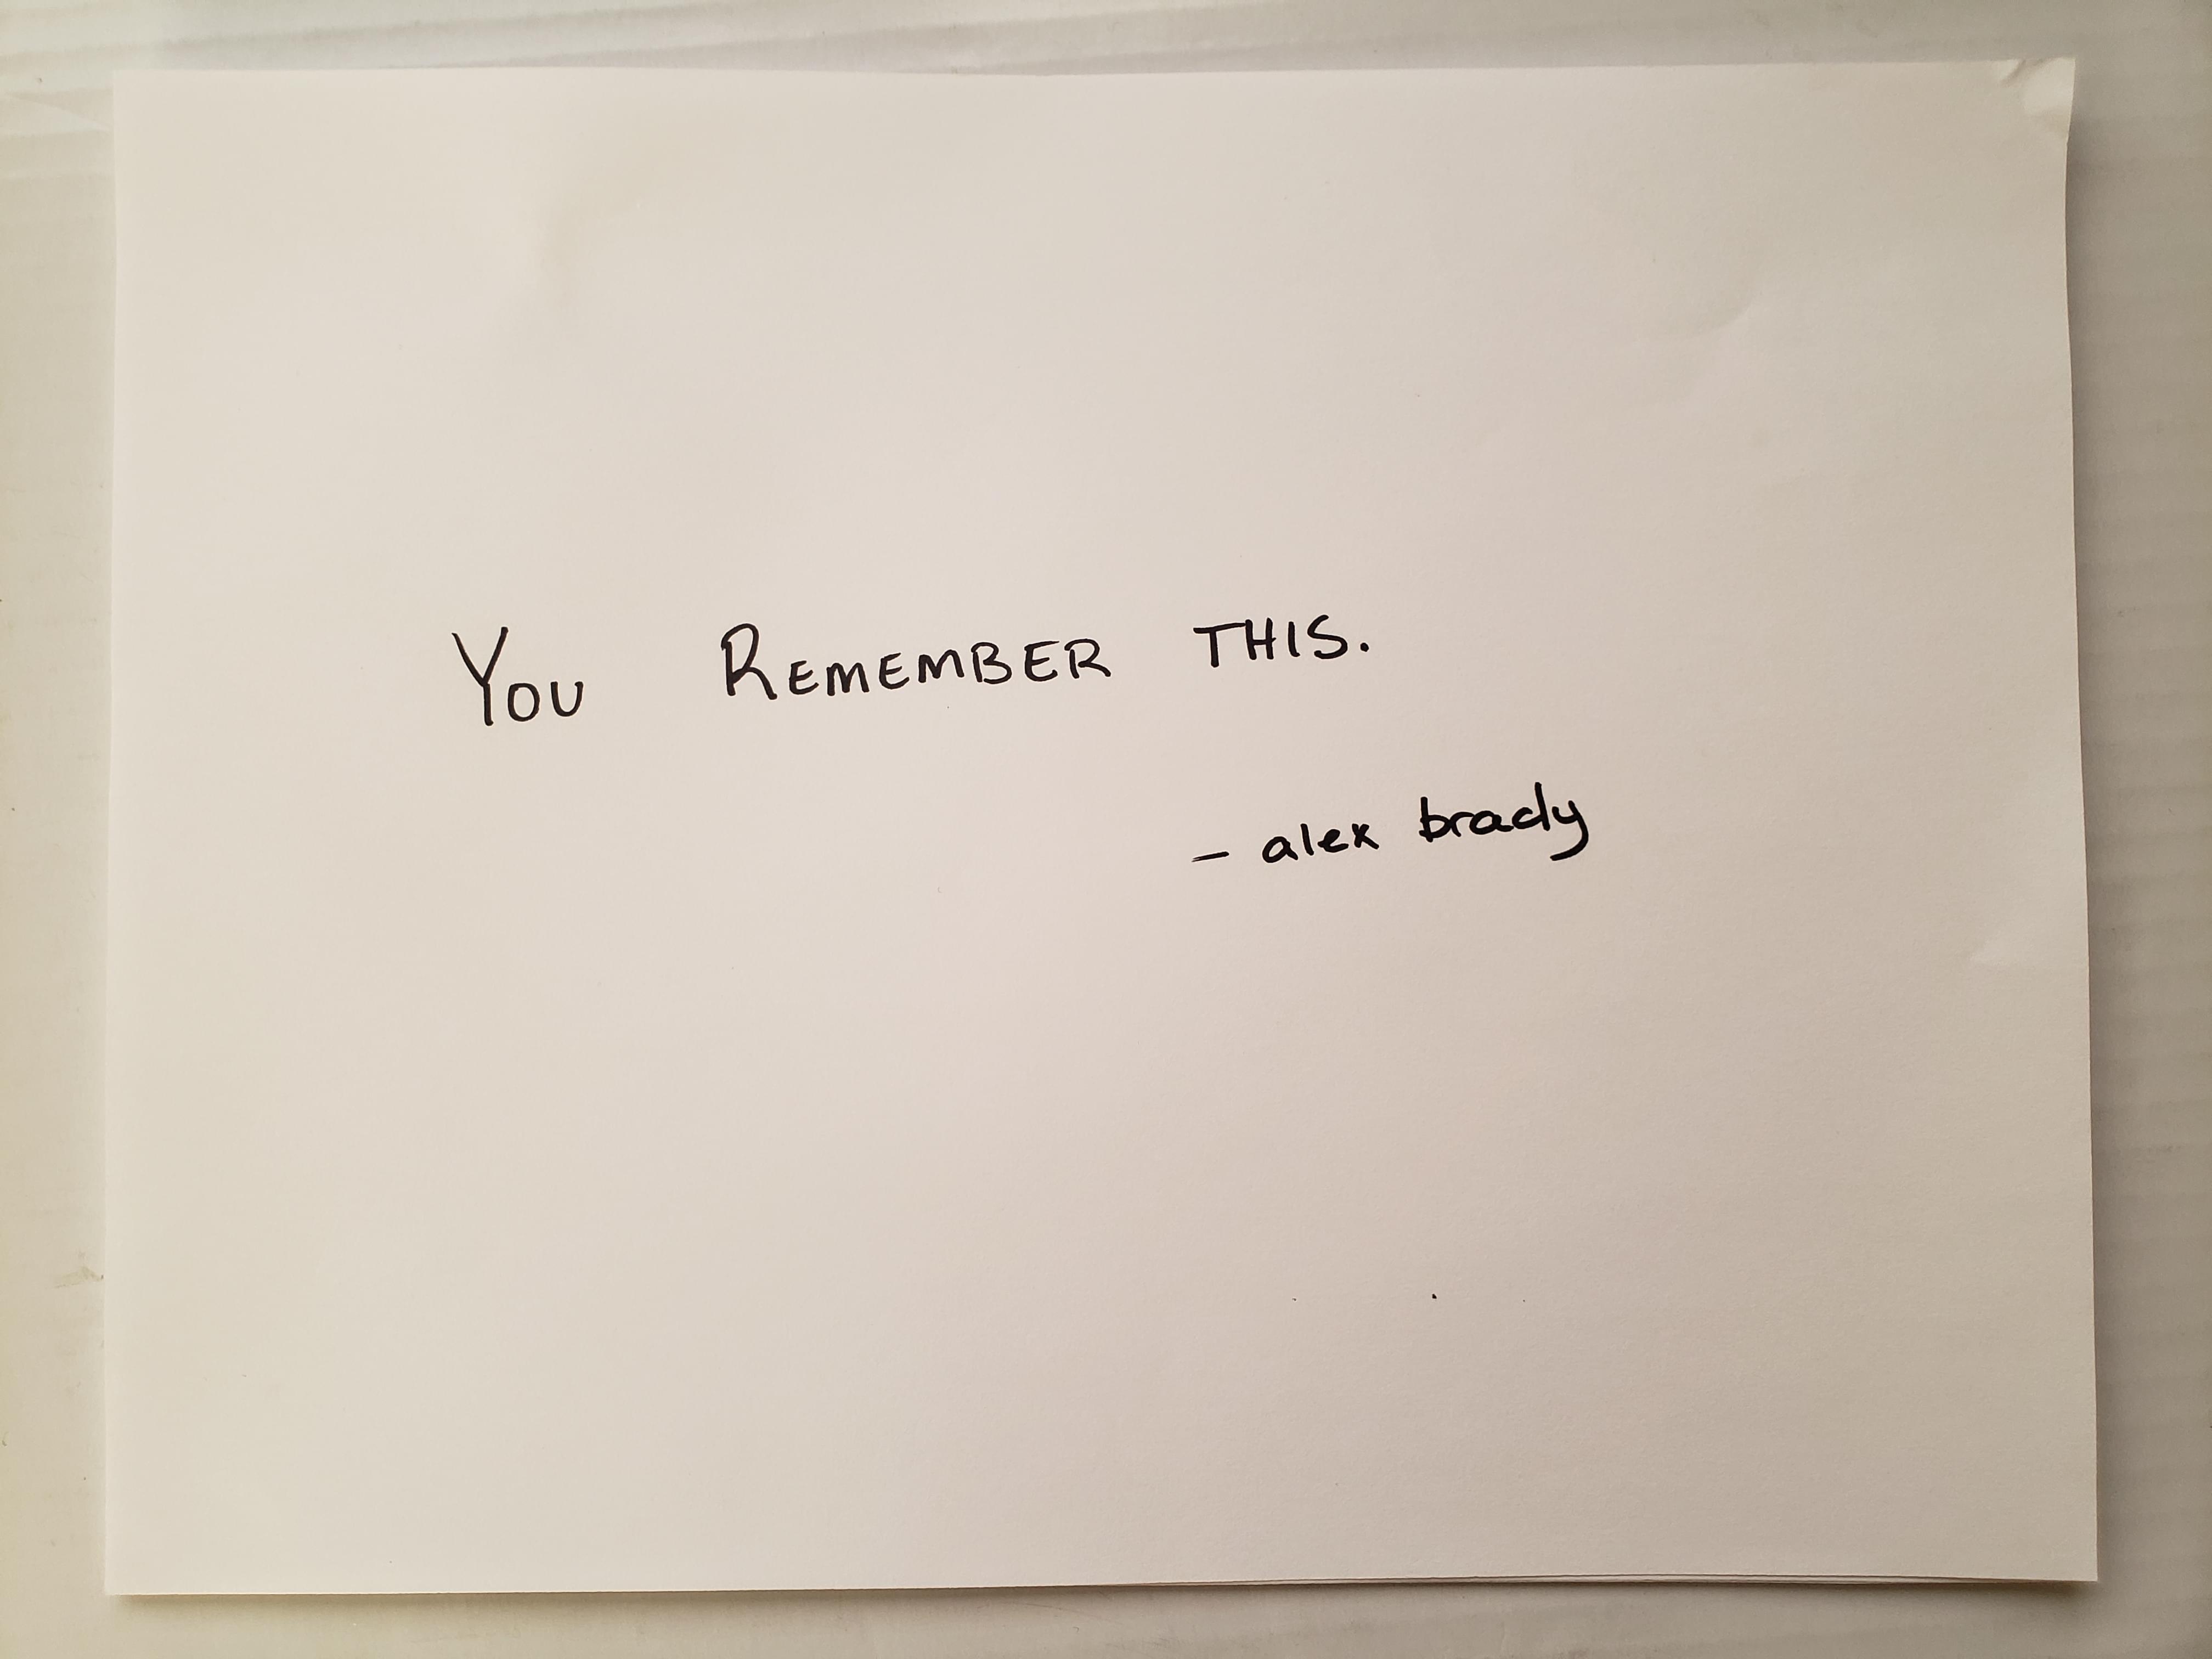 You REMEMBER THIS.
- alex brady